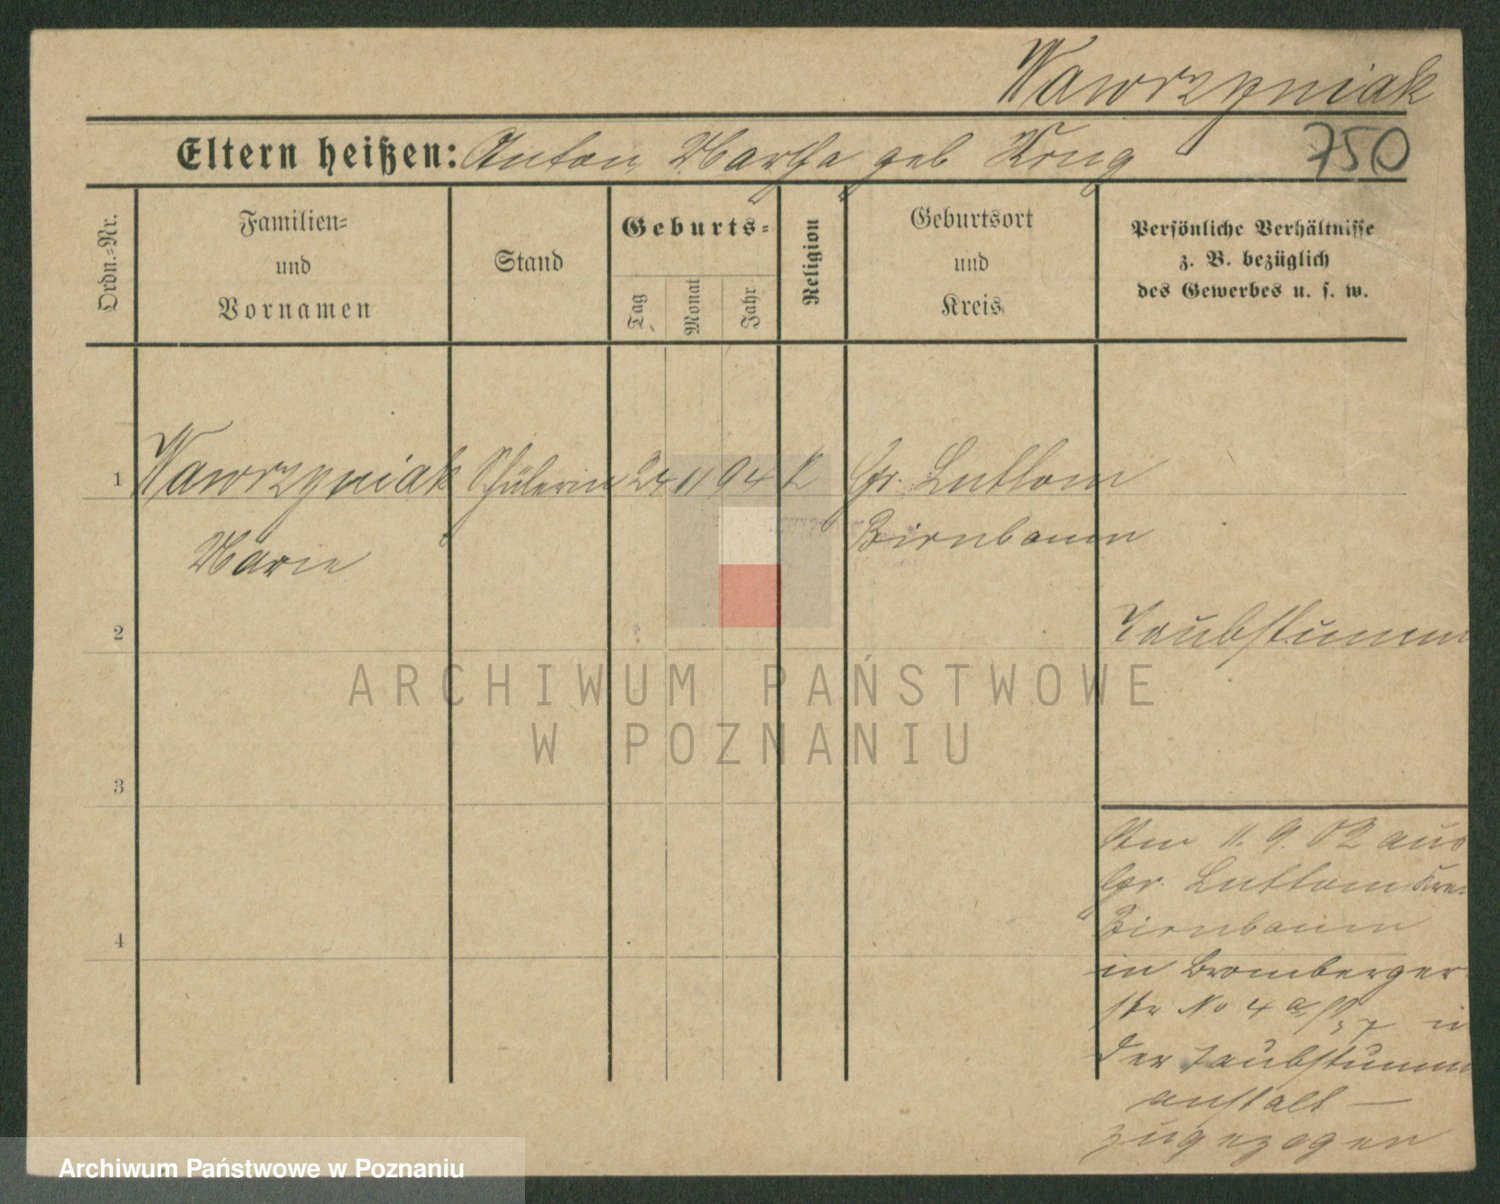 Wawrzyniak
Eltern heißen: Anton, Martha geb Krug
750
Ordn.=Nr.
Familien=
und
Vornamen
Stand
Geburts=
Tag
Monat
Jahr
Religion
Geburtsort
und
Kreis
Persönliche Verhältnisse
z. B. bezüglich
des Gewerbes u. s. w.
1 Wawrzyniak Schülerin 24 11 94 k Gr. Luttom
Marie Birnbaum
2 Taubstumm
ARCHIWUM PAŃSTWOWE
W POZNANIU
3
Am 11. 9. 02 aus
Gr. Luttom Kreis
Birnbaum
4
in Bromberger
str No 4 a
der Taubstummen
anstalt —
zugezogen
Archiwum Państwowe w Poznaniu